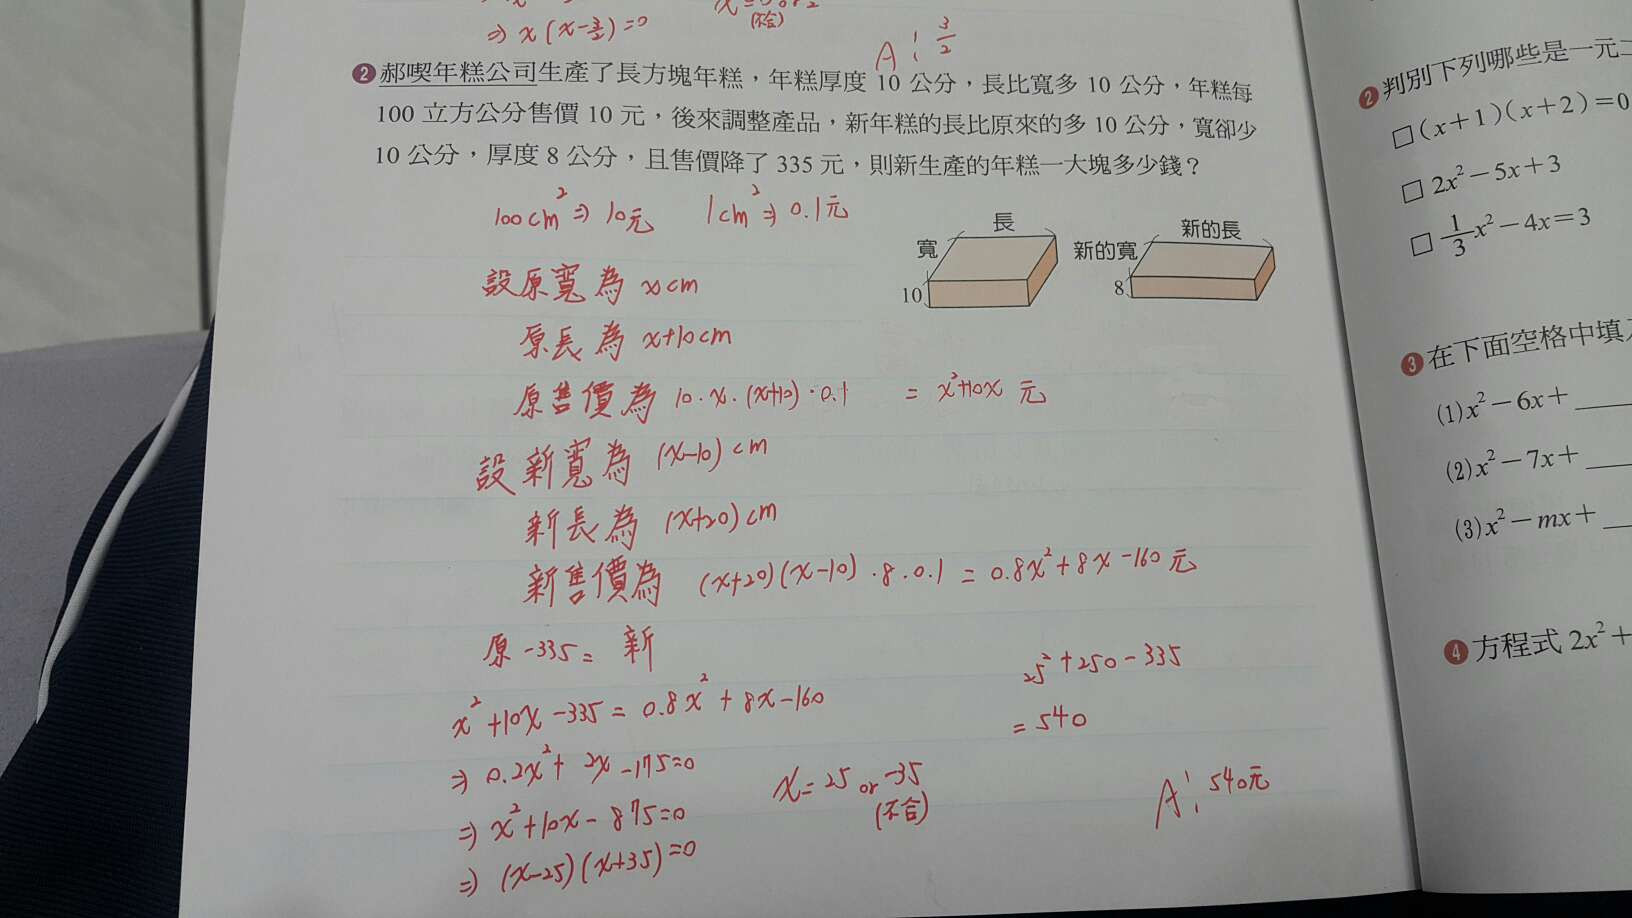 ⇒ x(x-3/2)=0
(不合)
A: 3/2
❷ 郝喫年糕公司生產了長方塊年糕，年糕厚度 10 公分，長比寬多 10 公分，年糕每
100 立方公分售價 10 元，後來調整產品，新年糕的長比原來的多 10 公分，寬卻少
10 公分，厚度 8 公分，且售價降了 335 元，則新生產的年糕一大塊多少錢？
100cm²⇒10元 1cm²⇒0.1元
長
寬
10
新的長
新的寬
8
設原寬為 xcm
原長為 x+10cm
原售價為 10·x·(x+10)·0.1 = x²+10x 元
設新寬為 (x-10)cm
新長為 (x+20)cm
新售價為 (x+20)(x-10)·8·0.1 = 0.8x²+8x-160元
原-335= 新
x²+10x-335=0.8x²+8x-160
⇒ 0.2x²+2x-175=0
⇒ x²+10x-875=0
⇒ (x-25)(x+35)=0
x=25 or -35
(不合)
25²+250-335
=540
A: 540元
❷ 判別下列哪些是一元二
□ (x+1)(x+2)=0
□ 2x²-5x+3
□ 1/3x²-4x=3
❸ 在下面空格中填入
(1) x²-6x+____
(2) x²-7x+____
(3) x²-mx+____
❹ 方程式 2x²+